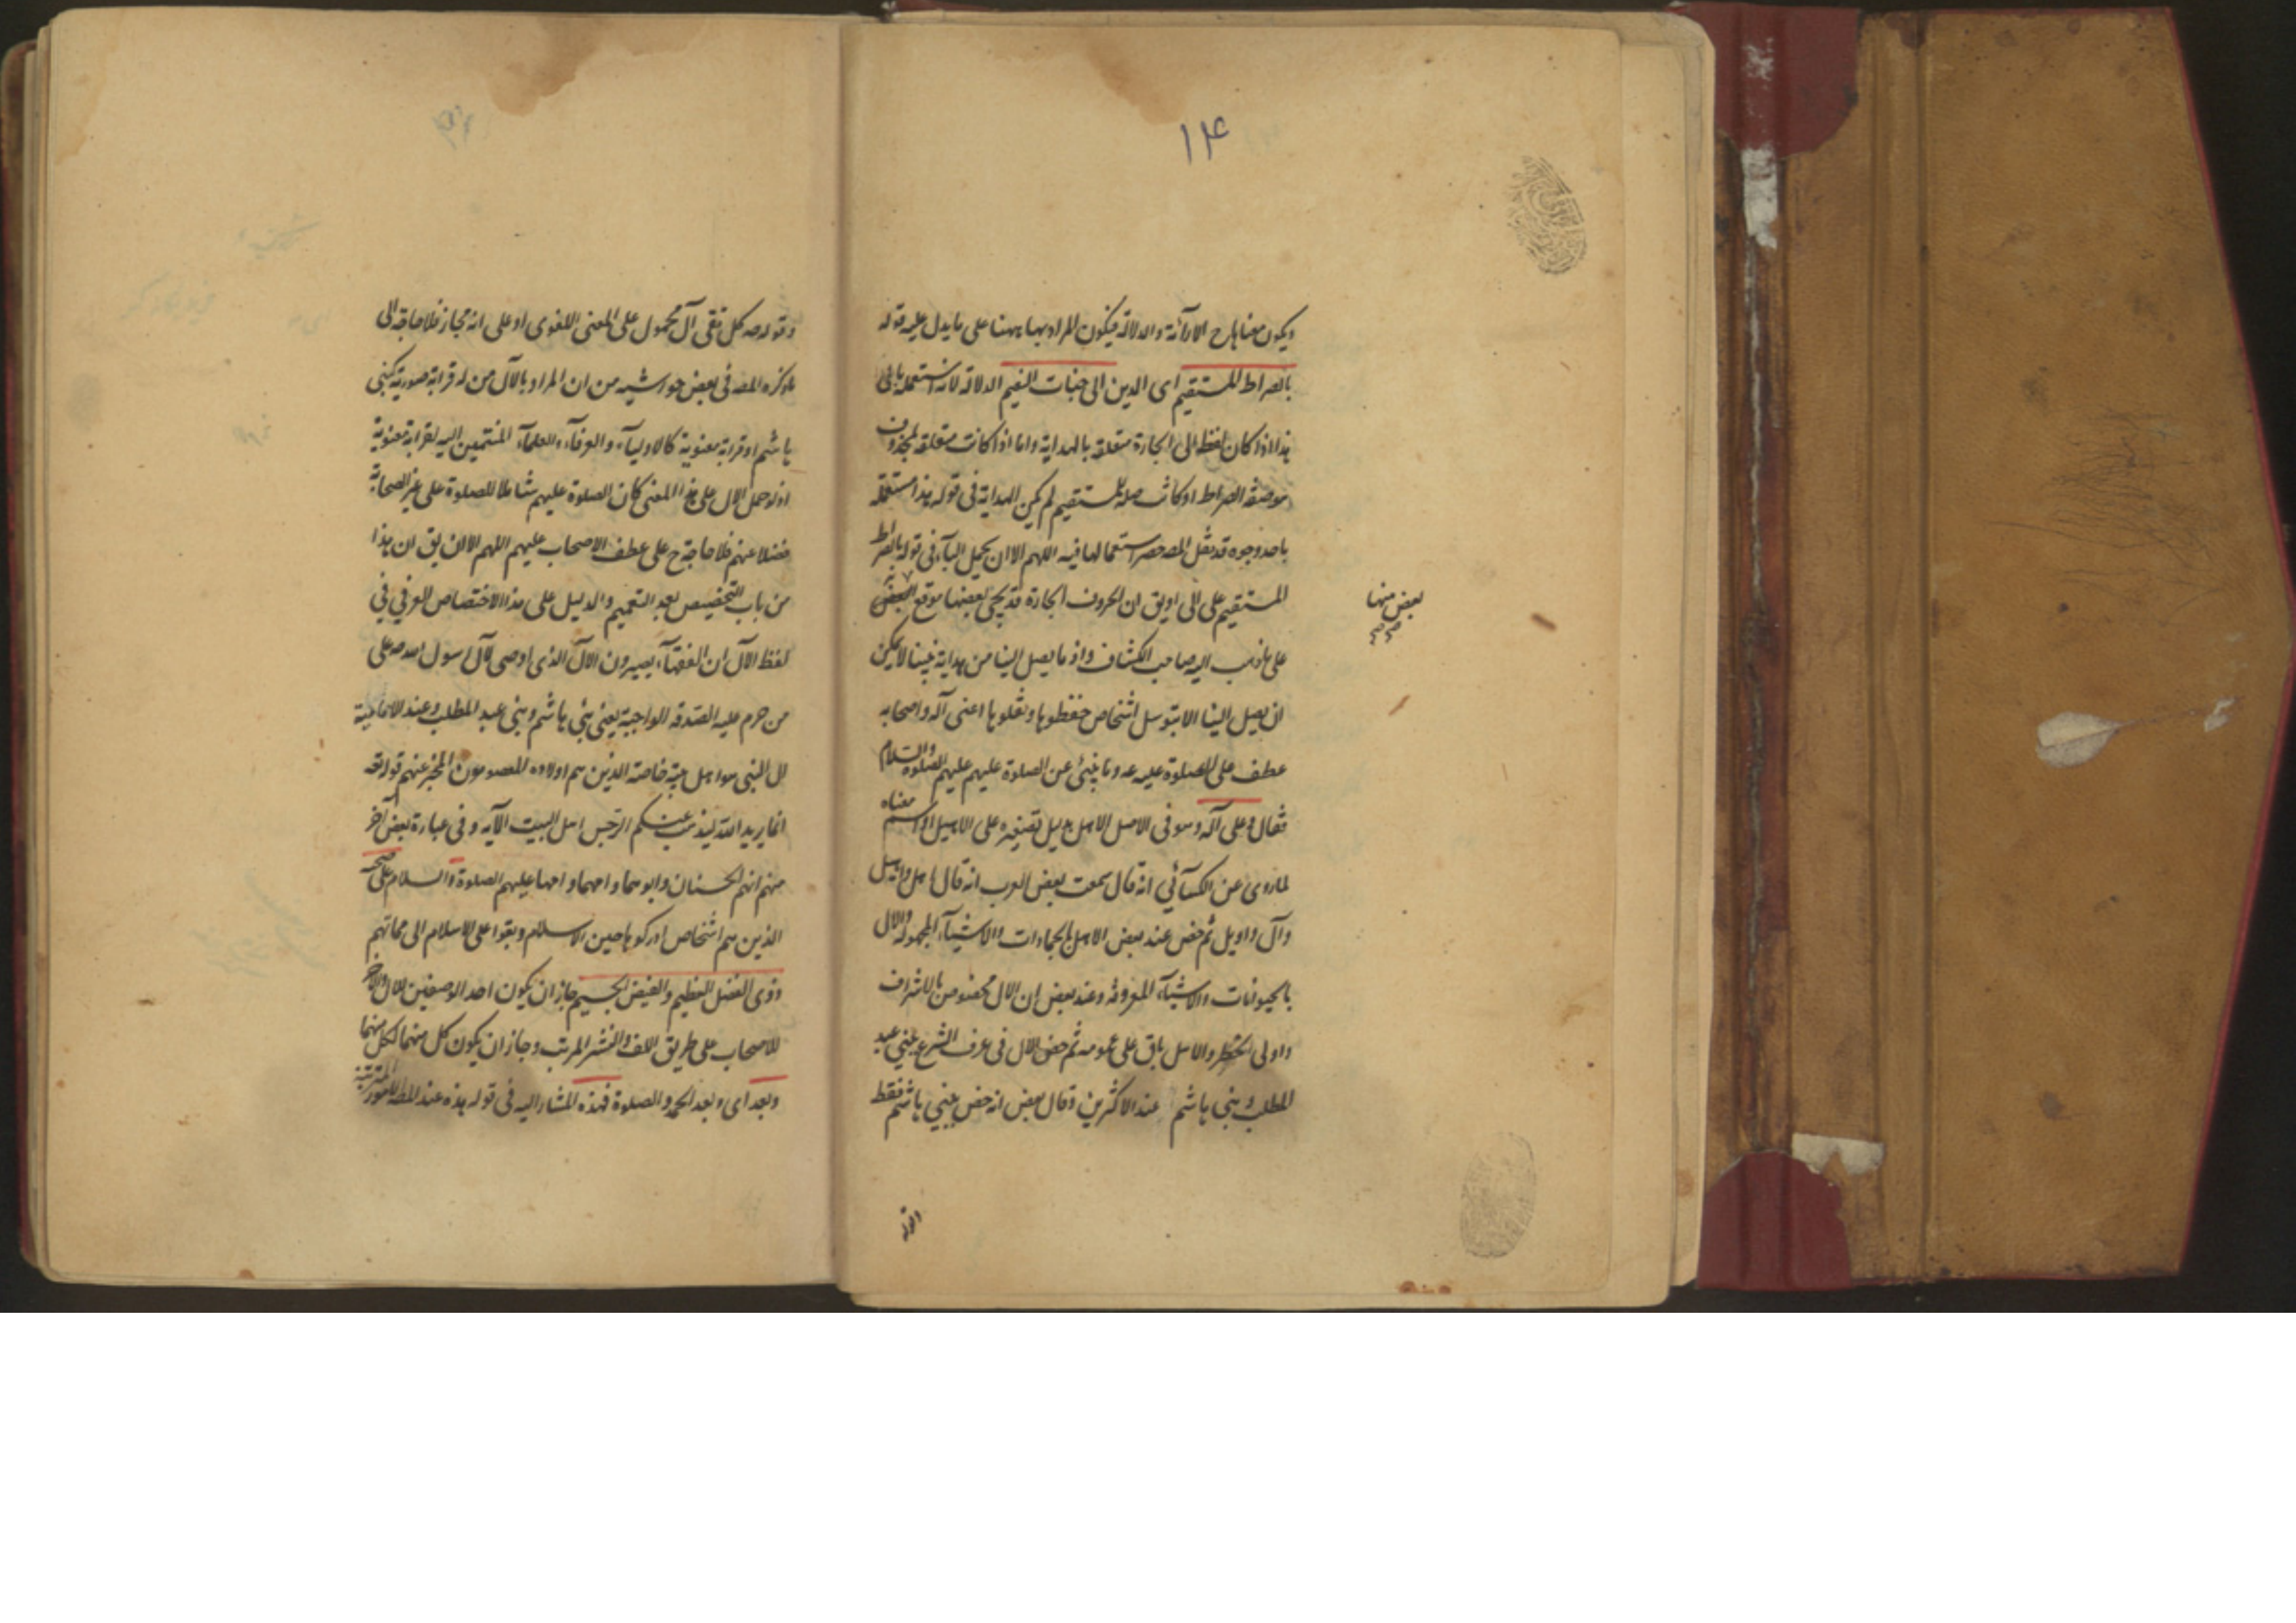 ۱۴
ويكون معناها ح الاراءة والدلالة فيكون المراد بها ههنا على ما يدل عليه قوله
بالصراط المستقيم اى الدين الى جنات النعيم الدلالة لانه استعمله بالى
هذا اذا كان لفظ الى الجارة متعلقة بالهداية واما اذا كانت متعلقة بمحذوف
هو صفة الصراط او كانت صلة للمستقيم لم يكن الهداية فى قوله هذا مستعملة
باحد وجوه قد نقل المص حصر استعمالها فيه اللهم الا ان يحمل الباء فى قوله بالصراط
المستقيم على الى او يق ان الحروف الجارة قد يجئ بعضها موقع البعض
بعض منها
صح صح
على ما ذهب اليه صاحب الكشاف واذ ما يصل الينا من هداية نبينا لا يمكن
ان يصل الينا الا بتوسل اشخاص حفظوها ونقلوها اعنى آله واصحابه
عطف على الصلوة عليه عه وما ينبئ عن الصلوة عليهم عليهم الصلوة والسلام
فقال وعلى آله وهو فى الاصل الاهل بدليل تصغيره على الاهيل او اسم معناه
لما روى عن الكسآئي انه قال سمعت بعض العرب انه قال اهل واهيل
وآل واويل ثم خص عند بعض الاهل بالجمادات والاشيآء المجهولة والال
بالحيوانات والاشيآء المعروفة وعند بعض ان الال مخصوص بالاشراف
واولى الخطر والاهل باق على عمومه ثم خص الال فى عرف الشرع ببني عبد
المطلب وبنى هاشم عند الاكثرين وقال بعض انه خص ببني هاشم فقط
وقوله
وقوله صه كل تقى آل محمول على المعنى اللغوى او على انه مجاز فلا حاجة الى
ما ذكره المص فى بعض حواشيه من ان المراد بالآل من له قرابة صورية كبنى
هاشم او قرابة معنوية كالاوليآء والعرفآء والعلمآء المنتمين اليه بقرابة معنوية
اذ لو حمل الال على هذا المعنى كان الصلوة عليهم شاملا للصلوة على غير الصحابة
فضلا عنهم فلا حاجة ح على عطف الاصحاب عليهم اللهم الا ان يق ان هذا
من باب التخصيص بعد التعميم والدليل على هذا الاختصاص العرفي في
لفظ الآل ان الفقهآء يصيرون الآل الذى اوصى لآل رسول الله صه على
من حرم عليه الصدقة الواجبة يعنى بنى هاشم وبنى عبد المطلب وعند الامامية
ال النبى هو اهل بيته خاصة الذين هم اولاده المعصومون المخبر عنهم قوله تعه
انما يريد الله ليذهب عنكم الرجس اهل البيت الآيه وفى عبارة بعض آخر
منهم انهم الحسنان وابوهما وامهما عليهم الصلوة والسلام على صحبه
الذين هم اشخاص ادركوها حين الاسلام وبقوا على الاسلام الى مماتهم
ذوى الفضل العظيم والفيض الجسيم جاز ان يكون احد الوصفين للال والآخر
للاصحاب على طريق اللف والنشر المرتب وجاز ان يكون كل منهما لكل منهما
وبعد اى وبعد الحمد والصلوة فهذه المشار اليه فى قوله هذه عند المص للامور المترتبة